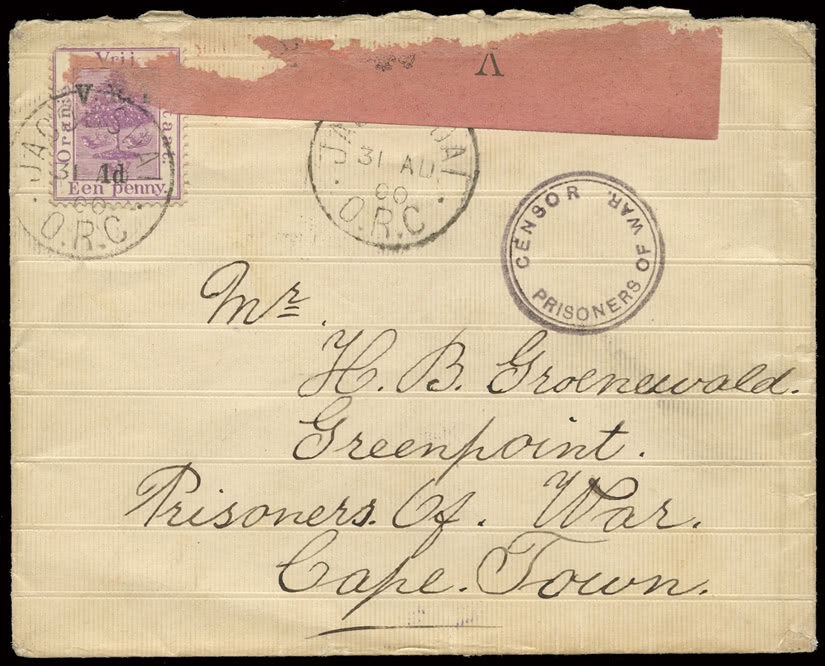 Vrij
Oranje
V
1d
Een penny.
31
00
O.R.C.
V
31 AU
00
O.R.C.
CENSOR
PRISONERS OF WAR.
Mr.
H. B. Groenewald.
Greenpoint.
Prisoners. Of. War.
Cape. Town.